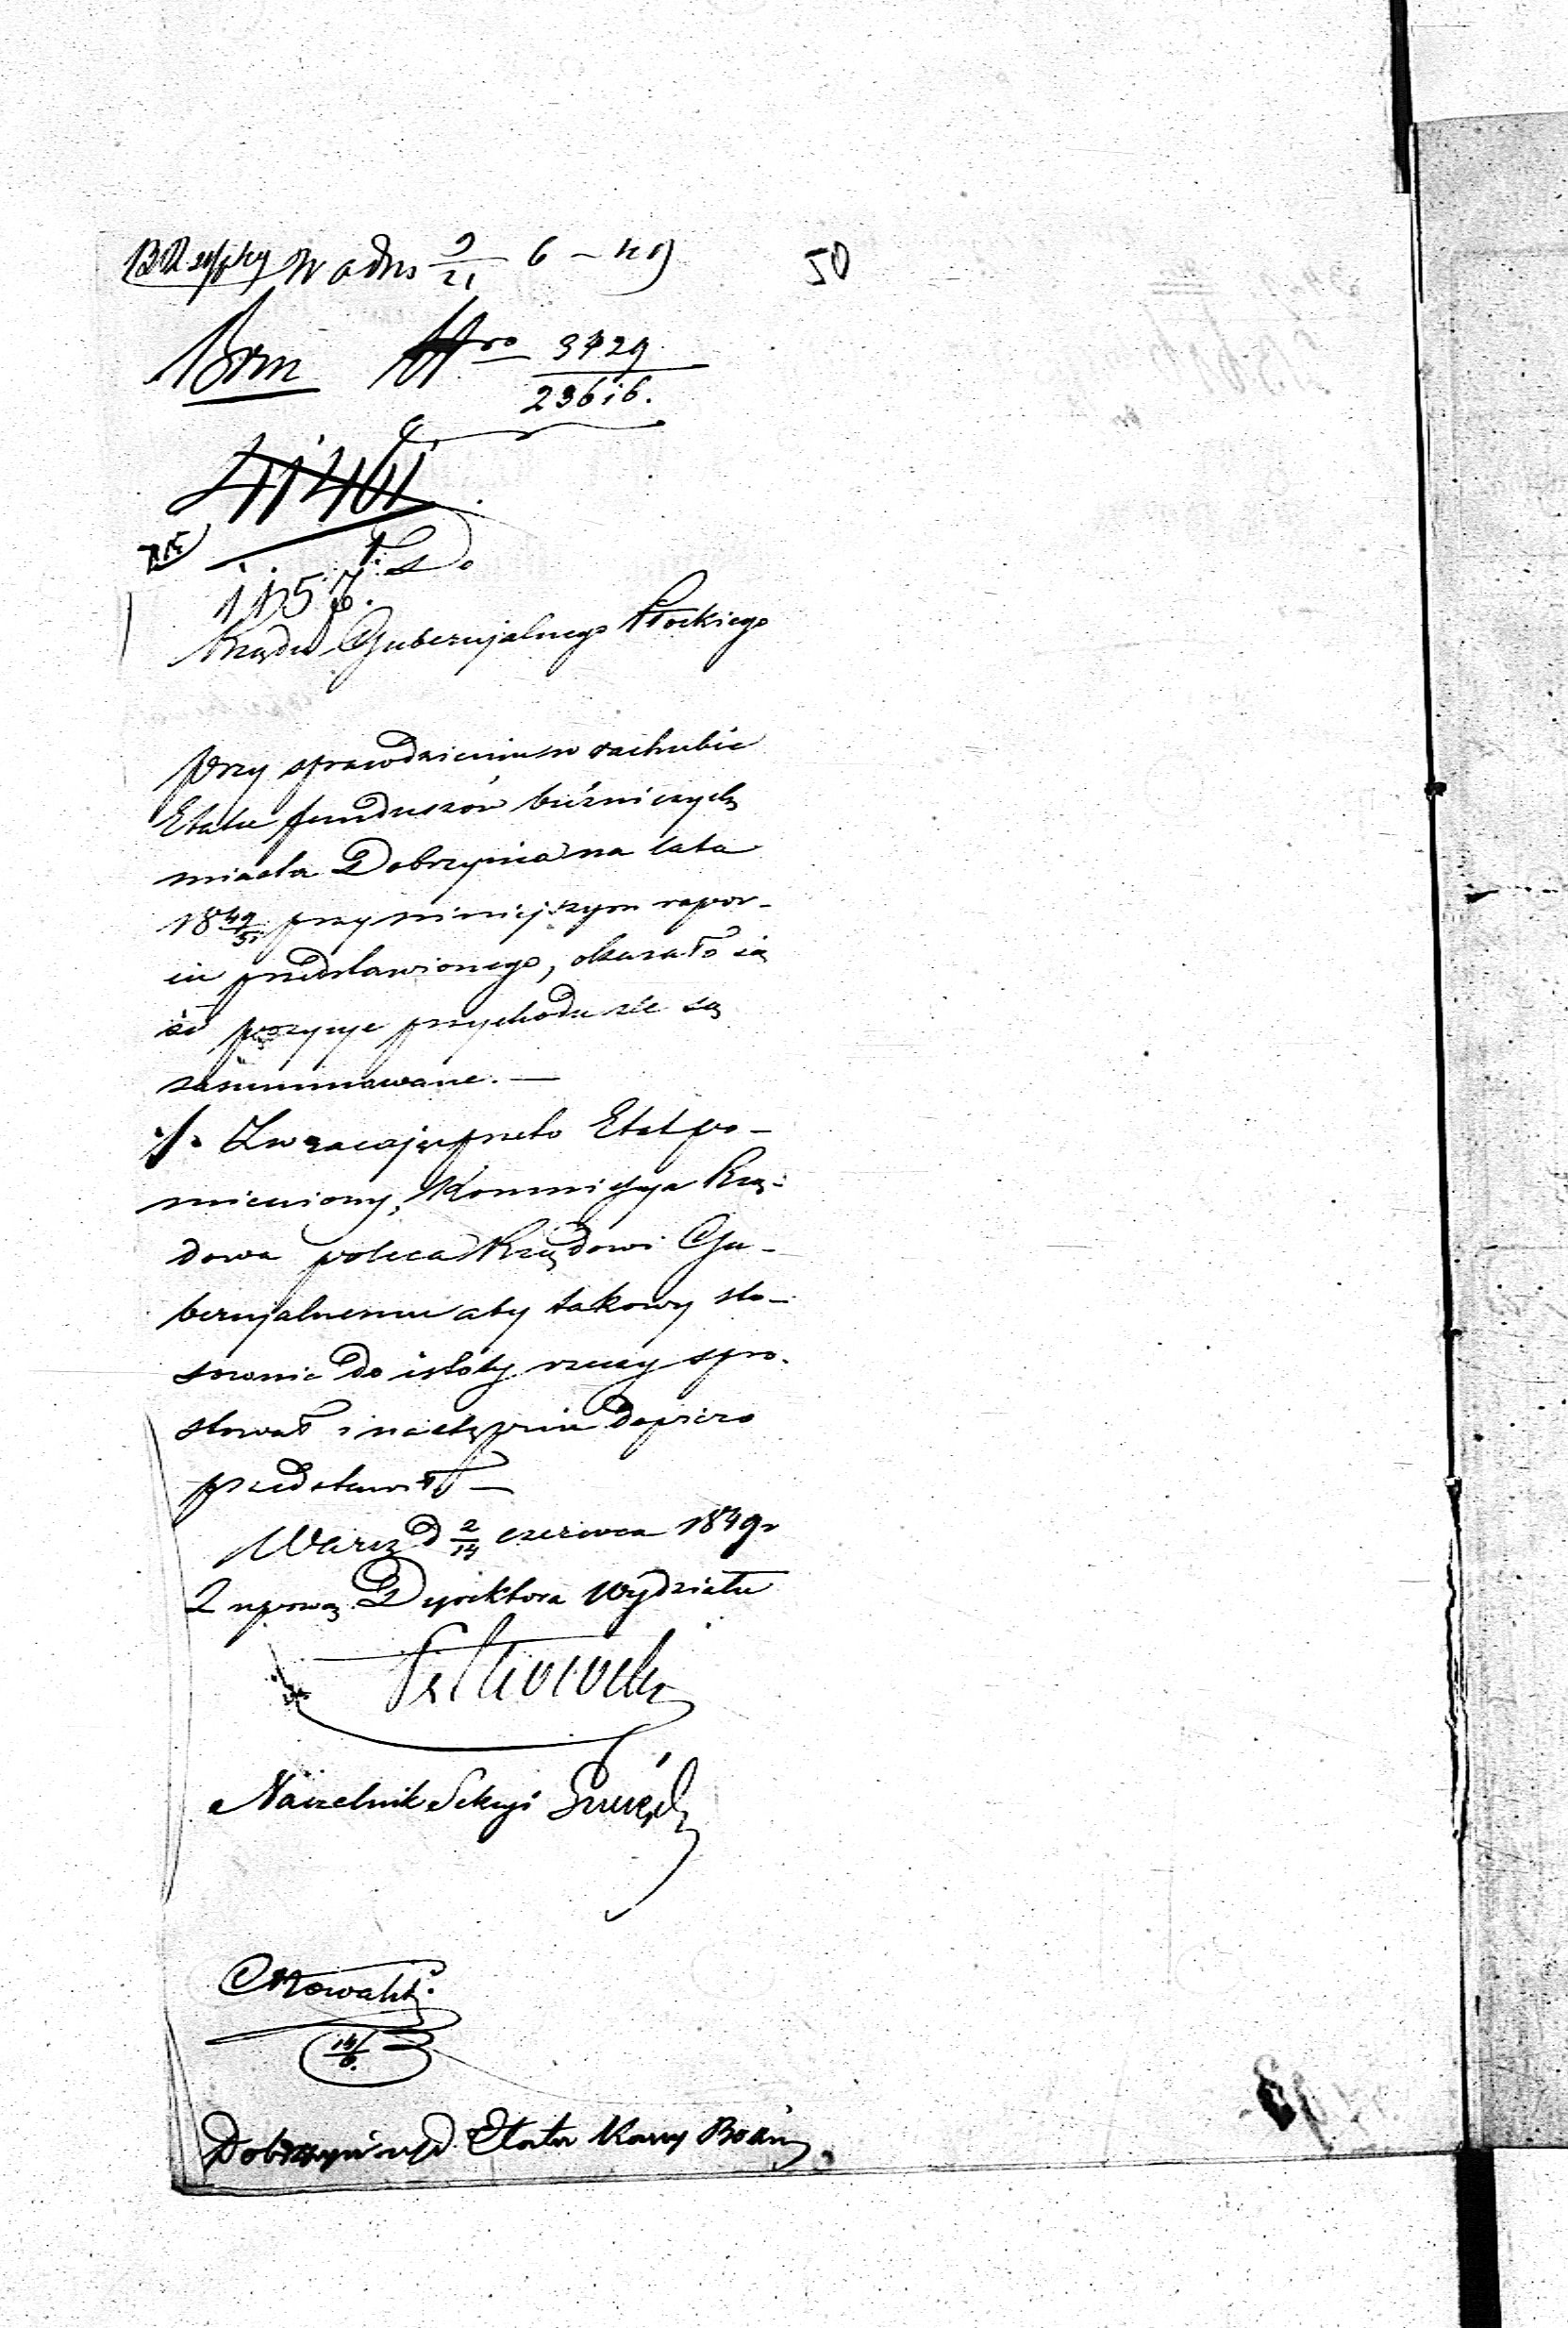 w dniu 9/21 6 – 49
50
Nro 3429
23616.
11457.
Do
Rządu Gubernjalnego Płockiego
Przy sprawdzeniu w rachubie
Etatu funduszów bużniczych
miasta Dobrzynia na lata
1849/51 przy niniejszym rapor-
cie przedstawionego, okazało się
że pozycye przychodu źle są
zasummowane. —
·/. Zwracając przeto Etat po-
mieniony, Kommissya Rzą-
dowa poleca Rządowi Gu-
bernjalnemu aby takowy sto-
sownie do istoty rzeczy spro-
stował i następnie dopiero
przedstawił —
Warsz d 2/14 czerwca 1849 r
Z upoważ. Dyrektora Wydziału
Naczelnik Sekcyi
Nowakk
14/6.
Dobrzyń n/D. Etata Kassy Bożn